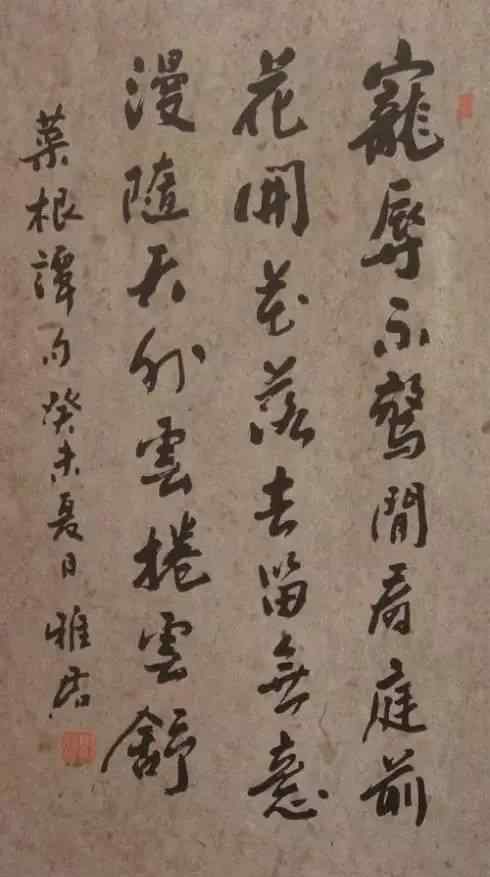 寵辱不驚閒看庭前
花開花落去留無意
漫隨天外雲捲雲舒
菜根譚句癸未夏日雅居